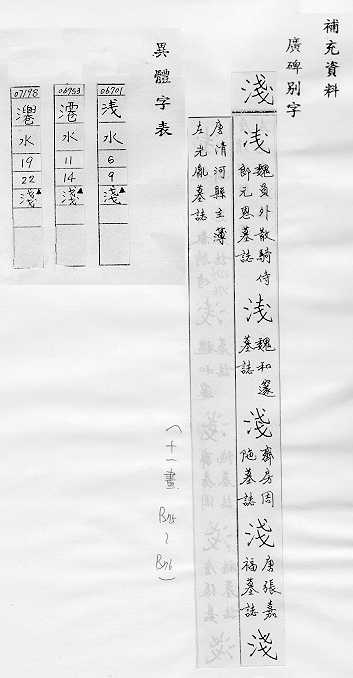 補充資料
廣碑別字
淺
浅 魏員外散騎侍郎元恩墓誌
浅 魏和邃墓誌
淺 齊房周陁墓誌
淺 唐張嘉福墓誌
淺
唐清河縣主簿左光胤墓誌
異體字表
06701
浅
水
6
9
淺▲
06953
水
11
14
淺▲
07198
水
19
22
淺▲
(十一畫